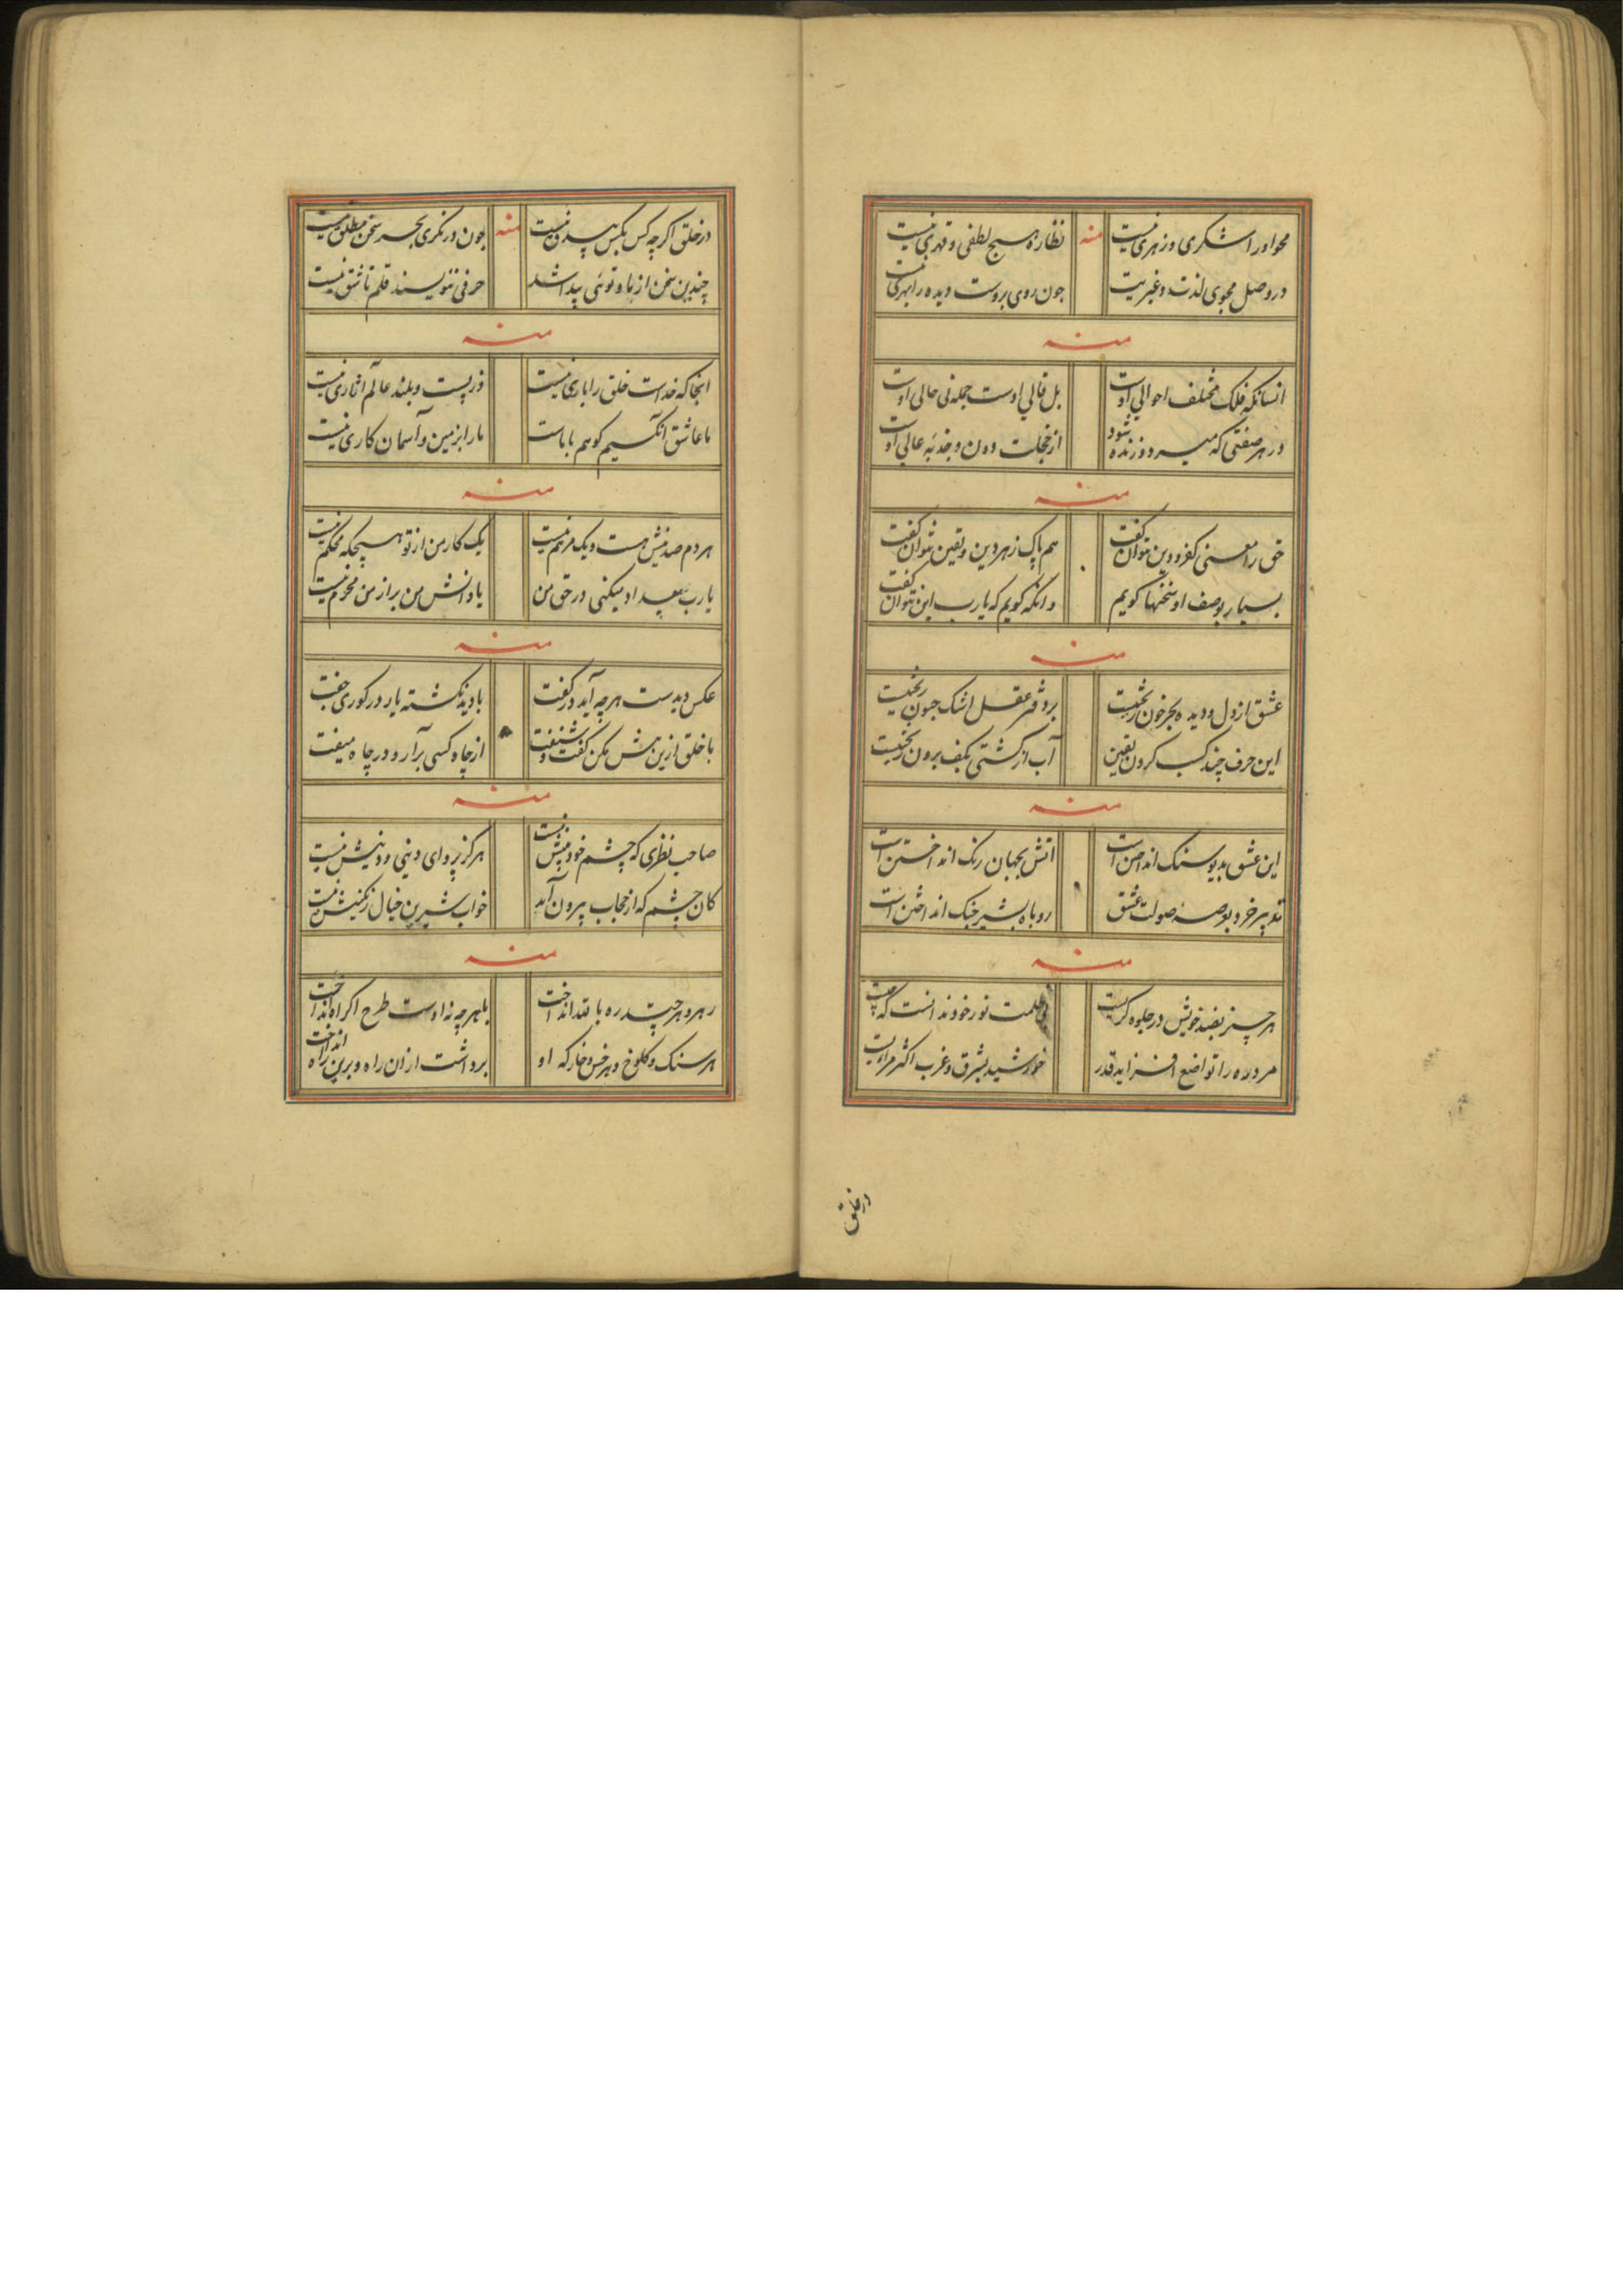 محو اورا شکری و زهری نیست منه نظاره هیچ لطفی و قهری نیست
در وصل مجوی لذت و غیریت چون روی بروست دیده را بهری نیست
منه
انسانکه فلک مختلف احوالی اوست بل قالی اوست جمله نی حالی اوست
در هر صفتی که میرد و زنده شود از خجلت دون و جذبه عالی اوست
منه
حق را معنی کفر و دین نتوان گفت هم پاک ز هر دین و یقین نتوان گفت
بسیار بوصف او سخنها کویم وانکه کویم که یارب این نتوان گفت
منه
عشق از دل و دیده بجز خون نریخت بر دفتر عقل اشک جیحون نریخت
این حرف چند کسب کردن یقین آب از کشتی بکف برون ریخت
منه
این عشق بدیو سنک انداختن است اتش بجهان رنک انداختن است
تدبیر خرد بعرصه صولت عشق روباه بشیر جنک انداختن است
منه
هر چیز بضد خویش در جلوه کریست ظلمت نور خود ندانست که چیست
مردره را تواضع افزاید قدر خورشید بشرق و غرب اکثر مرئیست
در خلق
در خلق اکرچه کس بکس بیدق نیست منه چون در نکری بجز سخن مطلق نیست
چندین سخن از ما و توئی پیدا شد حرفی ننویسند قلم تا شق نیست
منه
انجا که خداست خلق را باری نیست در پست و بلند عالم اثاری نیست
ما عاشق انکسیم کو هم با ماست ما را بزمین و آسمان کاری نیست
منه
هر دم صد نیش هست و یک مرهم نیست یک کار من از تو هیچکه محکم نیست
یارب بیداد میکنی در حق من یا دانش من براز من محرم نیست
منه
عکس دیدست هرچه آید در کفت با دید نکشته یار در کوری جفت
با خلق ازین بیش مکن کفت و شنفت از چاه کسی برآر و در چاه میفت
منه
صاحب نظری که چشم خود بینش نیست هرکز پروای دینی و دینش نیست
کان چشم که از حجاب بیرون آید خواب شیرین خیال رنکینش نیست
منه
رهرو هر چیت در ره بالله انداخت با هر چه نه اوست طرح اکراه انداخت
هر سنک و کلوخ و هر خس و خار که او برداشت از ان راه و برین راه انداخت